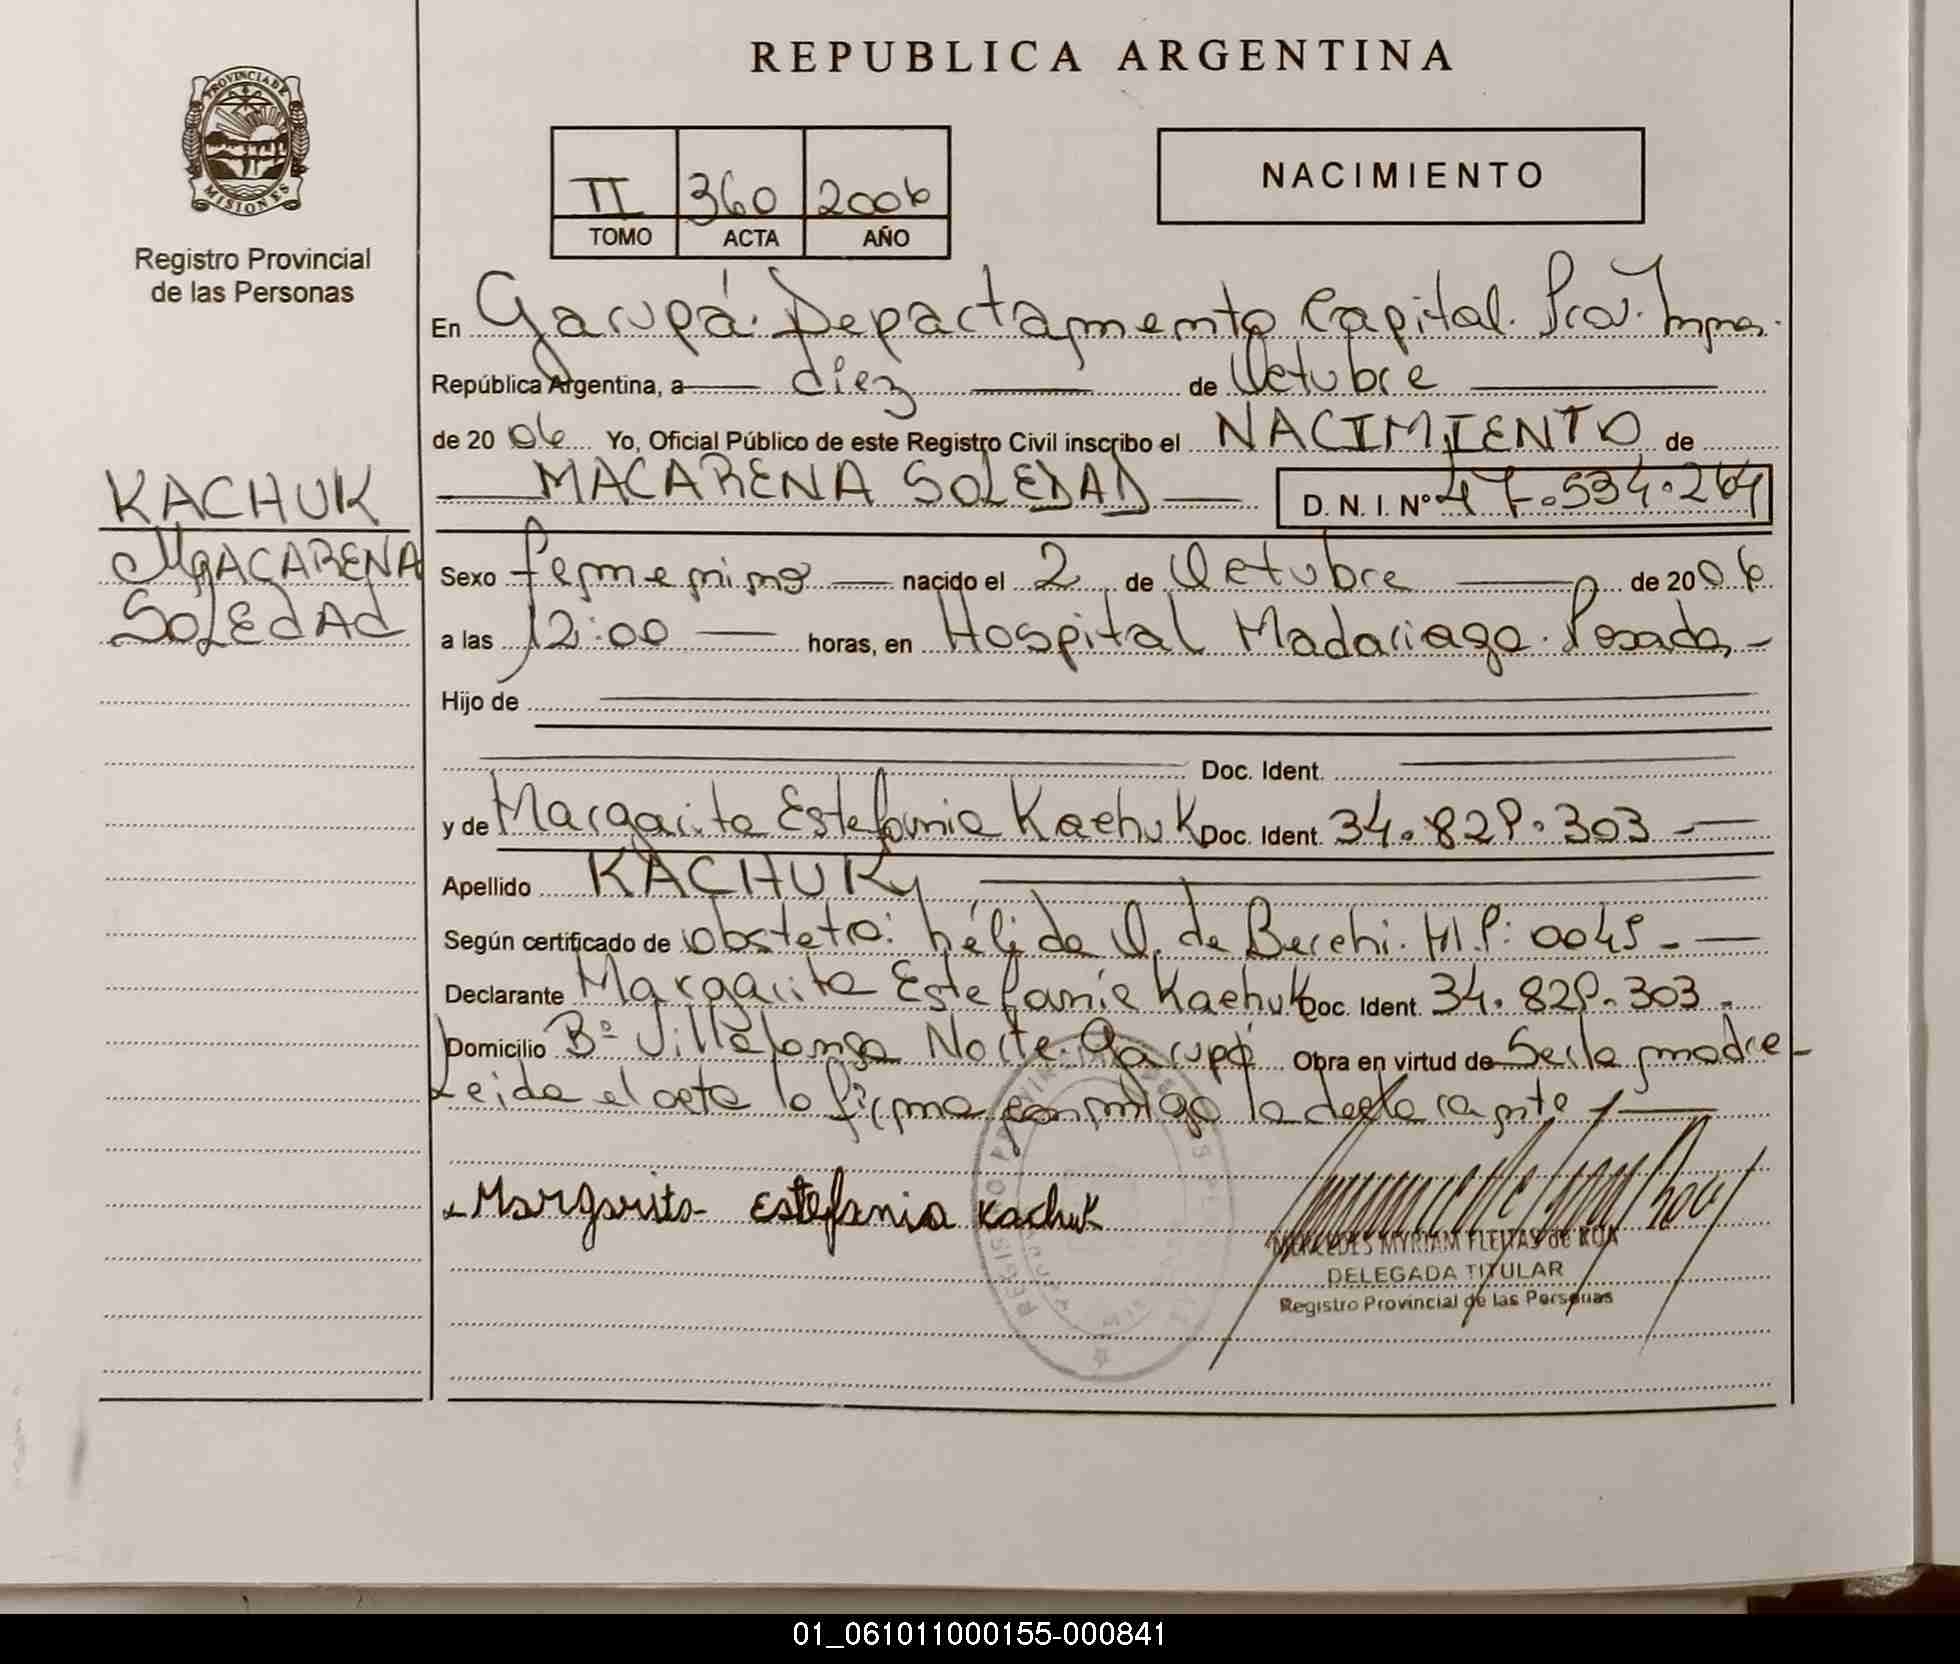 REPUBLICA ARGENTINA
PROVINCIA DE MISIONES
Registro Provincial
de las Personas
II 360 2006
TOMO ACTA AÑO
NACIMIENTO
En Garupá. Departamento Capital. Prov. Mnes.
República Argentina, a diez de Octubre
de 2006 Yo, Oficial Público de este Registro Civil inscribo el NACIMIENTO de
MACARENA SOLEDAD D. N. I. Nº 47.534.264
KACHUK
MACARENA
SOLEDAD
Sexo femenino nacido el 2 de Octubre de 2006
a las 12:00 horas, en Hospital Madariaga. Posadas
Hijo de
Doc. Ident.
y de Margarita Estefania Kachuk Doc. Ident. 34.829.303
Apellido KACHUK
Según certificado de obstetra: de Berchi. M.P: 0045
Declarante Margarita Estefanía Kachuk Doc. Ident. 34.829.303
Domicilio Bº Villalonga Norte. Garupá Obra en virtud de Ser la madre
Leida el acta la firma conmigo la declarante
Margarita Estefania Kachuk
MERCEDES MYRIAM FLEITAS de ROA
DELEGADA TITULAR
Registro Provincial de las Personas
01_061011000155-000841